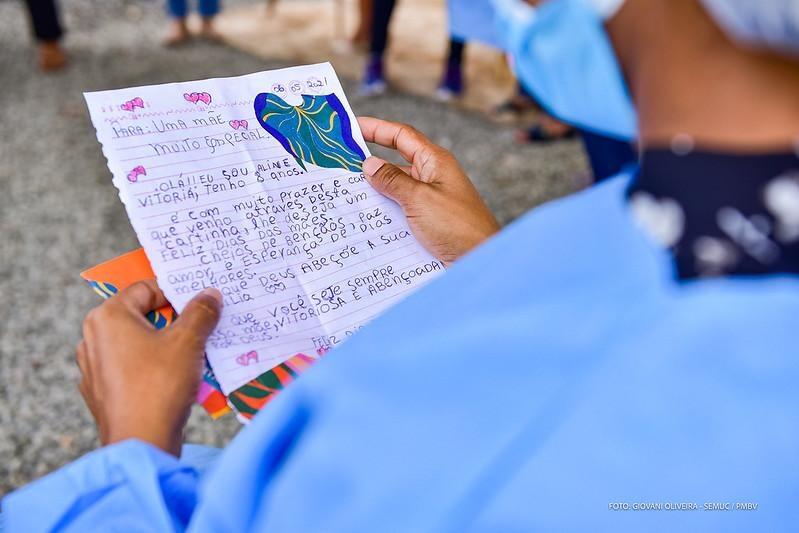 06 05 2021
PARA: UMA MÃE
MUITO ESPECIAL.
OLÁ!! EU SOU ALINE
VITORIA, TENHO 8 anos.
e com muito prazer e
que venho através desta
cartinha, lhe deseja um
FELIZ DIAS DAS MÃES.
CHEIOS DE BENÇÃOS, PAZ
amor e ESPERANÇAS DE DIAS
melhores.
que DEUS ABEÇÕE A SUA
que VOCÊ SEJE SEMPRE
mãe, VITORIOSA E ABENÇOADA
DEUS.
FELIZ
FOTO: GIOVANI OLIVEIRA - SEMUC / PMBV